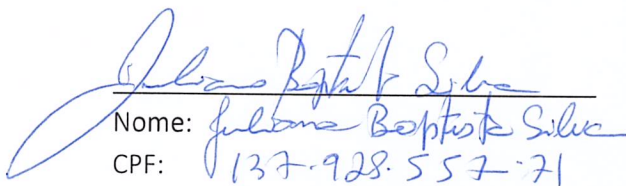 Juliana Baptista Silva
Nome: Juliana Baptista Silva
CPF: 137.928.557-71